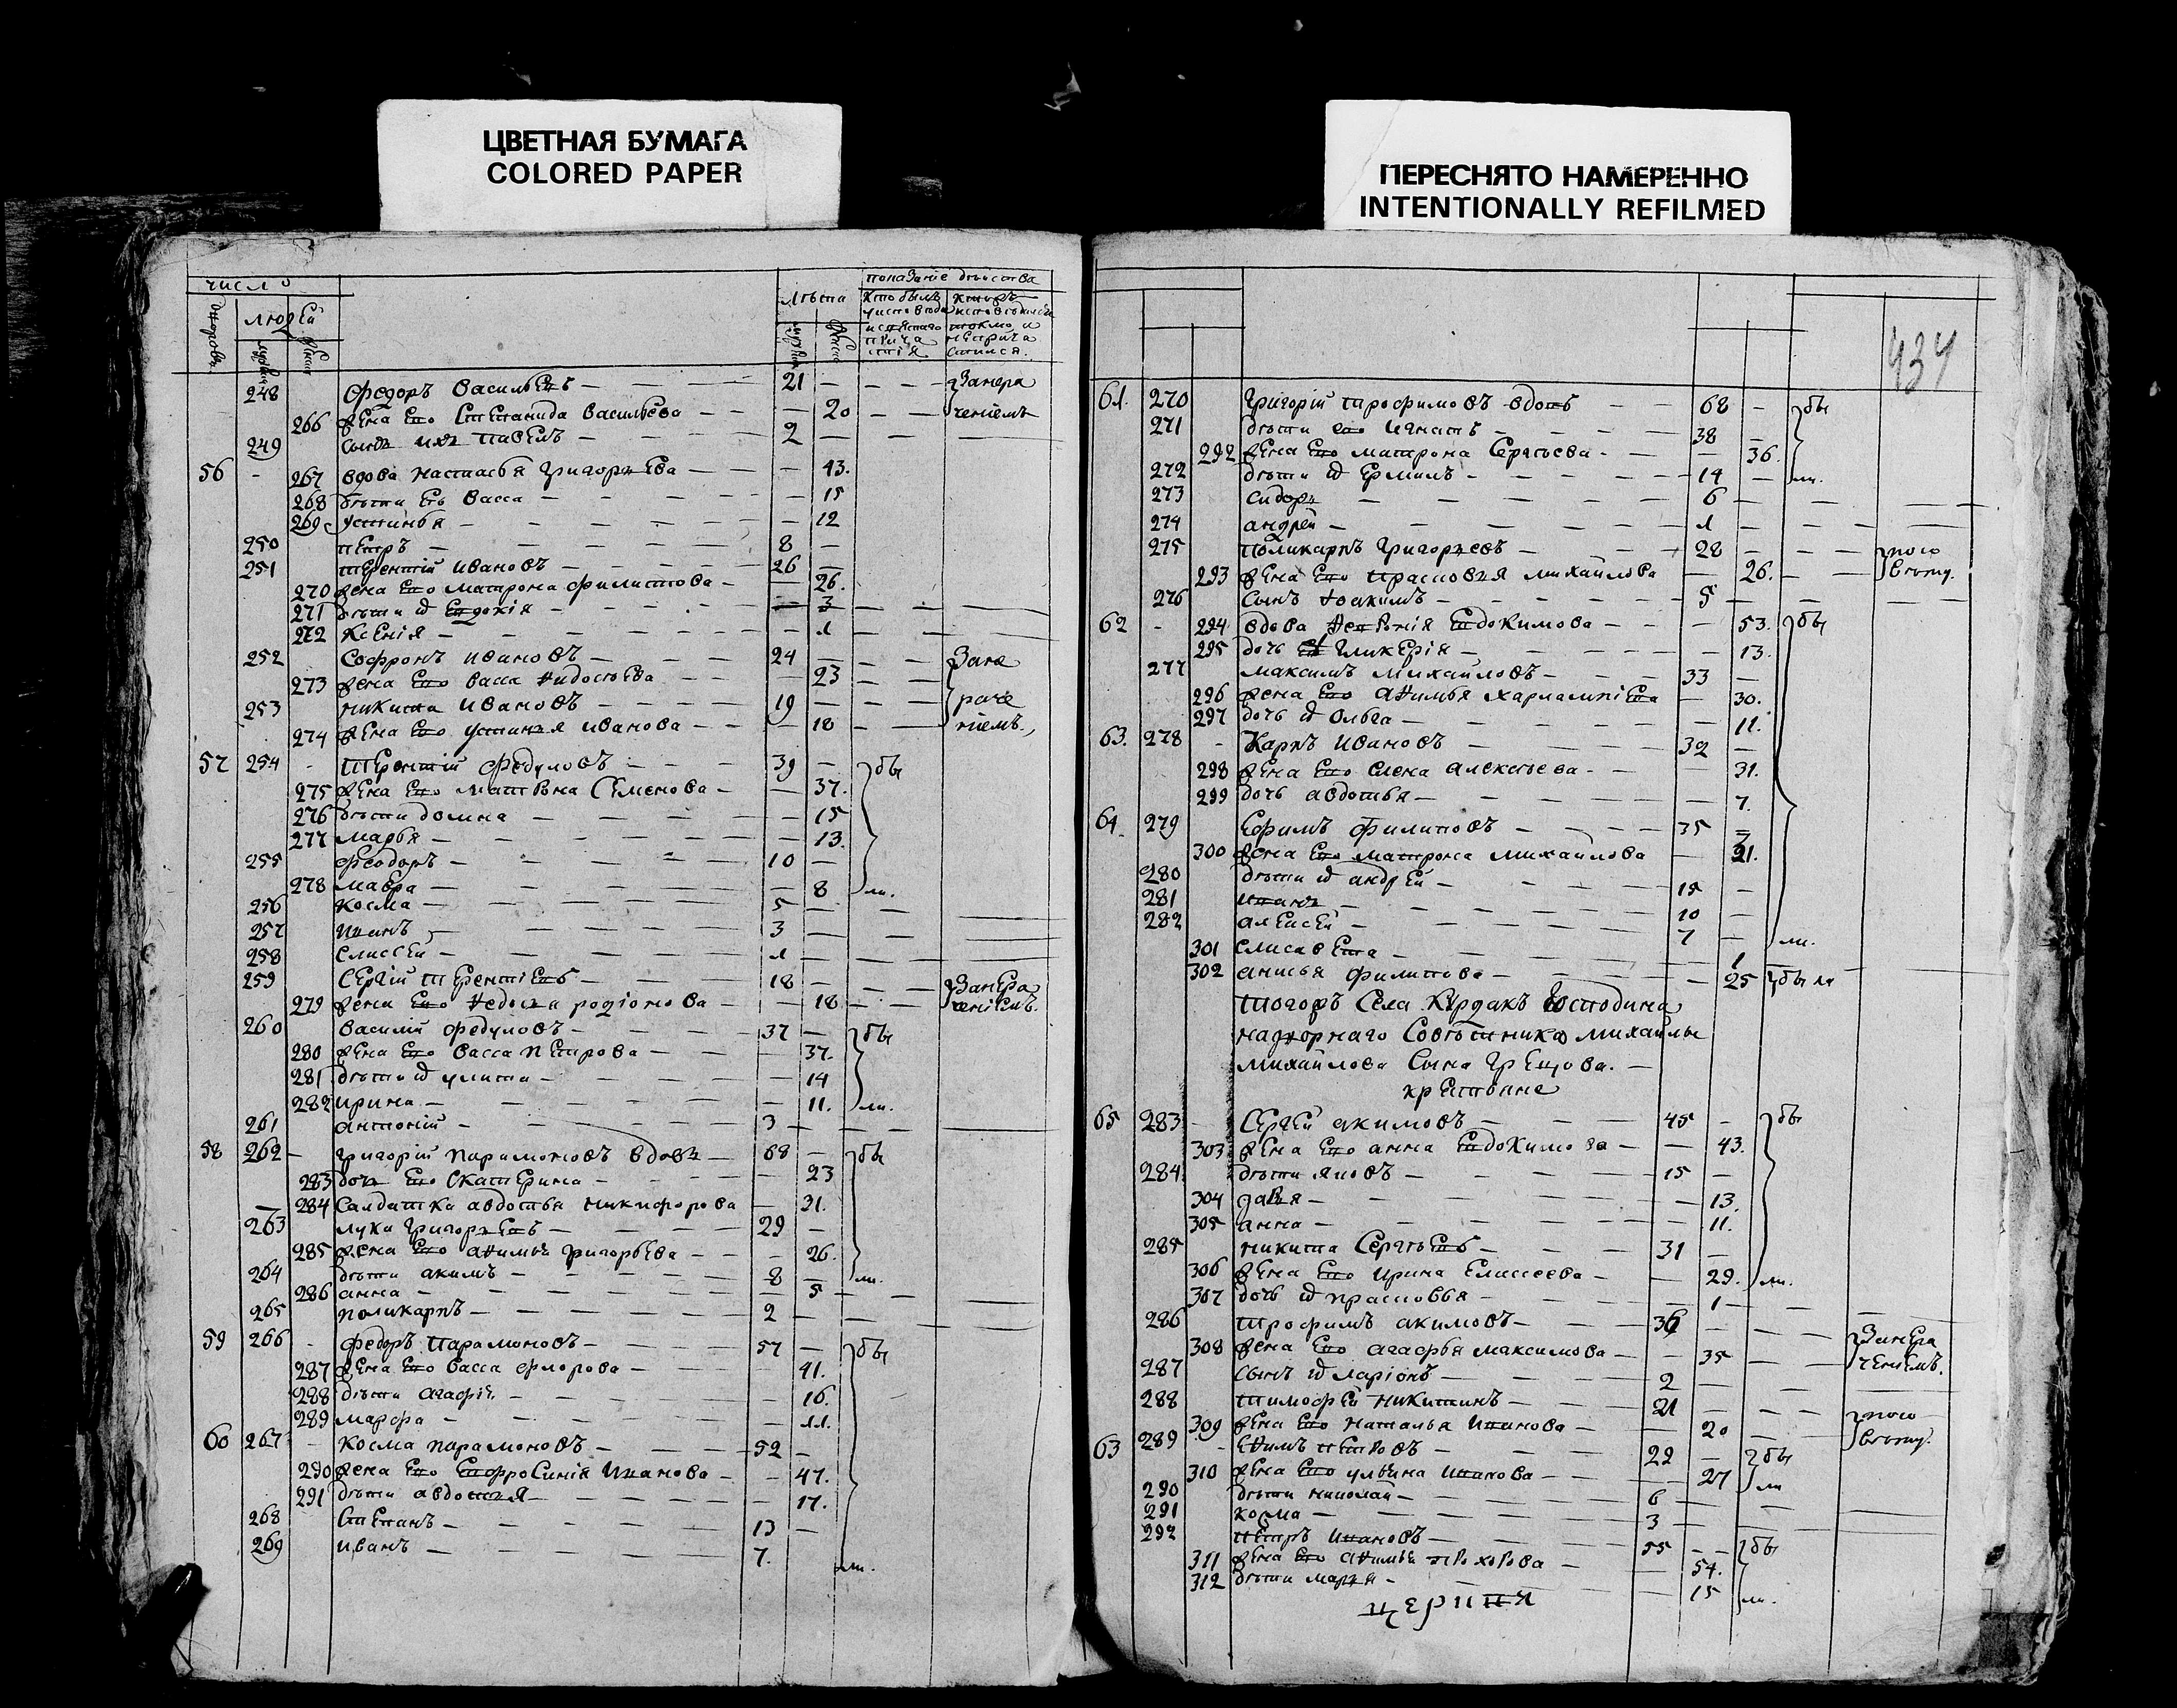 ЦВЕТНАЯ БУМАГА
COLORED PAPER
ПЕРЕСНЯТО НАМЕРЕННО
INTENTIONALLY REFILMED
число
показание действа
людей
лета
248 Федоръ Васильевъ — 21 — Занера
266 жена ево Степанида Васильева — 20 — чениемъ
249 сынъ ихъ Павелъ — 2
56 - 267 вдова Настасья Григорьева — 43.
268 дети ее Васса — 15
269 Устинья — 12
250 Петръ — 8
251 Терентий Ивановъ — 26
270 жена ево Матрона Филиппова — 26.
271 дети их Евдокия — 3
272 Ксения — 1
252 Софронъ Ивановъ — 24 — Зане
273 жена ево Васса — 23
253 Никита Ивановъ — 19 — раче
274 жена ево Устинья Иванова — 18 — ниемъ
57 254 Терентий Федуловъ — 39 — бы
275 жена ево Матрона Семенова — 37.
276 дети Домна — 15
277 Марья — 13.
255 Феодоръ — 10
278 Мавра — 8 ли.
256 Косма — 5
257 Иванъ — 3
258 Елисей — 1
259 Сергий Терентиевъ — 18 — Занера
279 жена ево Федосья Родионова — 18. — чениемъ
260 Василий Федуловъ — 37 — бы
280 жена ево Васса Петрова — 37.
281 дети их Улита — 14
282 Ирина — 11. ли.
261 Антоний — 3
58 262 Григорий Парамоновъ вдовъ — 68 — бы
283 дочь ево Екатерина — 23
284 Салдатка Авдотья Никифорова — 31.
263 Лука Григорьевъ — 29
285 жена ево Анимья Григорьева — 26.
264 дети Акимъ — 8 ли.
286 Анна — 5
265 Поликарпъ — 2
59 266 Федоръ Парамоновъ — 57 — бы
287 жена ево Васса Флорова — 41.
288 дети Агафия — 16.
289 Марфа — 11.
60 267 Косма Парамоновъ — 52
290 жена ево Евфросиния Иванова — 47.
291 дети Авдотья — 17.
268 Степанъ — 13
269 Иванъ — 7. ли.
434
61 270 Григорий Трофимовъ вдовъ — 68 — бы
271 дети ево Игнатъ — 38
292 жена ево Матрона Сергеева — 36.
272 дети их Ермилъ — 14 ли.
273 Сидоръ — 6
274 Андрей — 1
275 Поликарпъ Григорьевъ — 28 — того
293 жена ево Прасковья Михайлова — 26.
276 Сынъ Иоакимъ — 5
62 - 294 вдова Феврония Евдокимова — 53. бы
295 дочь Гликерия — 13.
277 Максимъ Михайловъ — 33
296 жена ево Анимья Харлампиева — 30.
297 дочь их Ольга — 11.
63. 278 Карпъ Ивановъ — 32
298 жена ево Елена Алексеева — 31.
299 дочь Авдотья — 7.
64. 279 Ефимъ Филиповъ — 35
300 жена ево Матрона Михайлова — 31.
280 дети их Андрей — 15
281 Иванъ — 10
282 Алексей — 7 ли.
301 Елисавета — 1
302 Анисья Филипова — 25 бы ли
Тогожъ Села Курдакъ Господина
надворнаго Советника Михайлы
Михайлова Сына Грецова.
крестьяне
65 283 Сергей Акимовъ — 45 — бы
303 жена ево Анна Евдокимова — 43.
284 дети Яковъ — 15
304 Дарья — 13.
305 Анна — 11.
285 Никита Сергеевъ — 31
306 жена ево Ирина Елисеева — 29. ли.
307 дочь их Прасковья — 1
286 Трофимъ Акимовъ — 36 — Занера
308 жена ево Агафья Максимова — 35 — чениемъ.
287 Сынъ их Ларионъ — 2
288 Тимофей Никитинъ — 21 — того
309 жена ево Наталья Иванова — 20
63 289 Ефимъ Петровъ — 29 — бы
310 жена ево Ульяна Иванова — 27 ли
290 дети Николай — 6
291 Козма — 3
292 Петръ Ивановъ — 55 — бы
311 жена ево Анимья Прохорова — 54.
312 дети Марья — 15 ли.